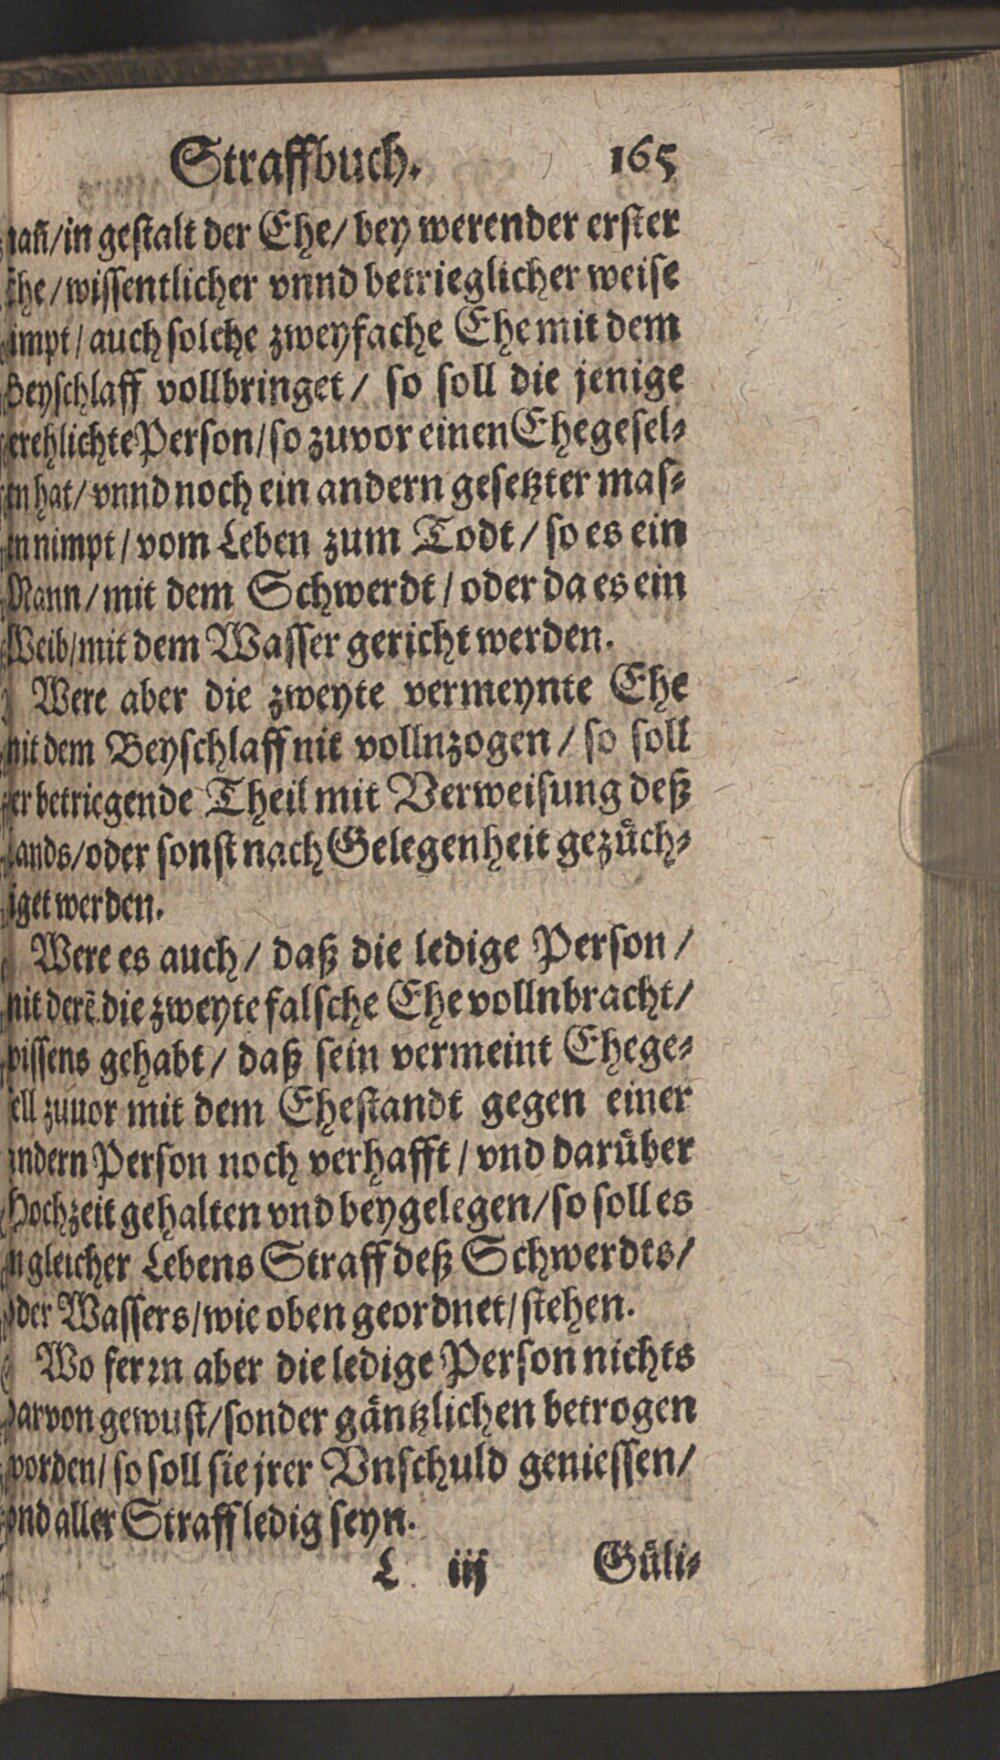 Straffbuch. 165
/ in gestalt der Ehe / bey werender erster
/ wissentlicher vnnd betrieglicher weise
/ auch solche zweyfache Ehe mit dem
Beyschlaff vollbringet / so soll die jenige
erehlichte Person / so zuvor einen Ehegesel⸗
en hat / vnnd noch ein andern gesetzter mas⸗
en nimpt / vom Leben zum Todt / so es ein
Mann / mit dem Schwerdt / oder da es ein
Weib / mit dem Wasser gericht werden.
Were aber die zweyte vermeynte Ehe
mit dem Beyschlaff nit vollnzogen / so soll
er betriegende Theil mit Verweisung deß
Lands / oder sonst nach Gelegenheit gezüch⸗
iget werden.
Were es auch / daß die ledige Person /
mit derẽ die zweyte falsche Ehe vollnbracht /
wissens gehabt / daß sein vermeint Ehege⸗
sell zuuor mit dem Ehestandt gegen einer
andern Person noch verhafft / vnd darüber
Hochzeit gehalten vnd beygelegen / so soll es
in gleicher Lebens Straff deß Schwerdts /
oder Wassers / wie oben geordnet / stehen.
Wo ferrn aber die ledige Person nichts
darvon gewust / sonder gäntzlichen betrogen
worden / so soll sie jrer Vnschuld geniessen /
vnd aller Straff ledig seyn.
L iij Güli⸗